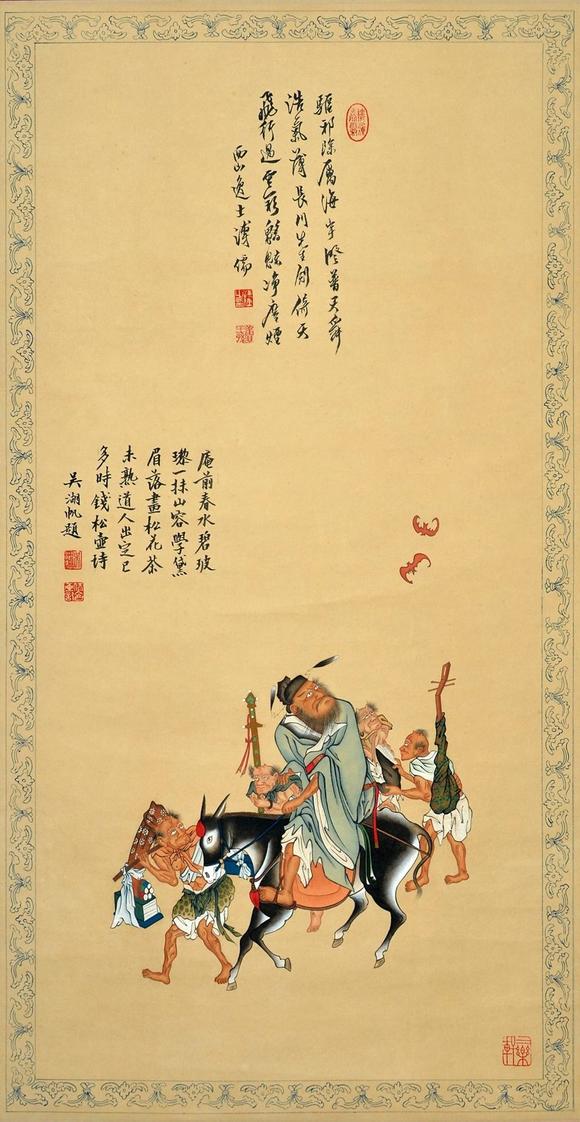 驅邪除厲海宇澄天
浩氣薄長川先生劍倚天
飛行過淨煙
西山逸士溥儒
庵前春水碧玻
瓈一抹山容學黛
眉落盡松花茶
未熟道人出定已
多時錢松壺詩
吳湖帆題